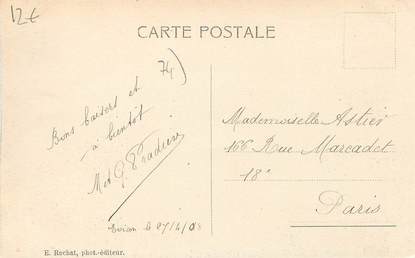 12€
CARTE POSTALE
74)
Bons baisers et
à bientôt
M et G. Pradier
Evian le 27/4/08
Mademoiselle Astier
166 Rue Marcadet
18e
Paris
E. Rochat, phot.-éditeur.